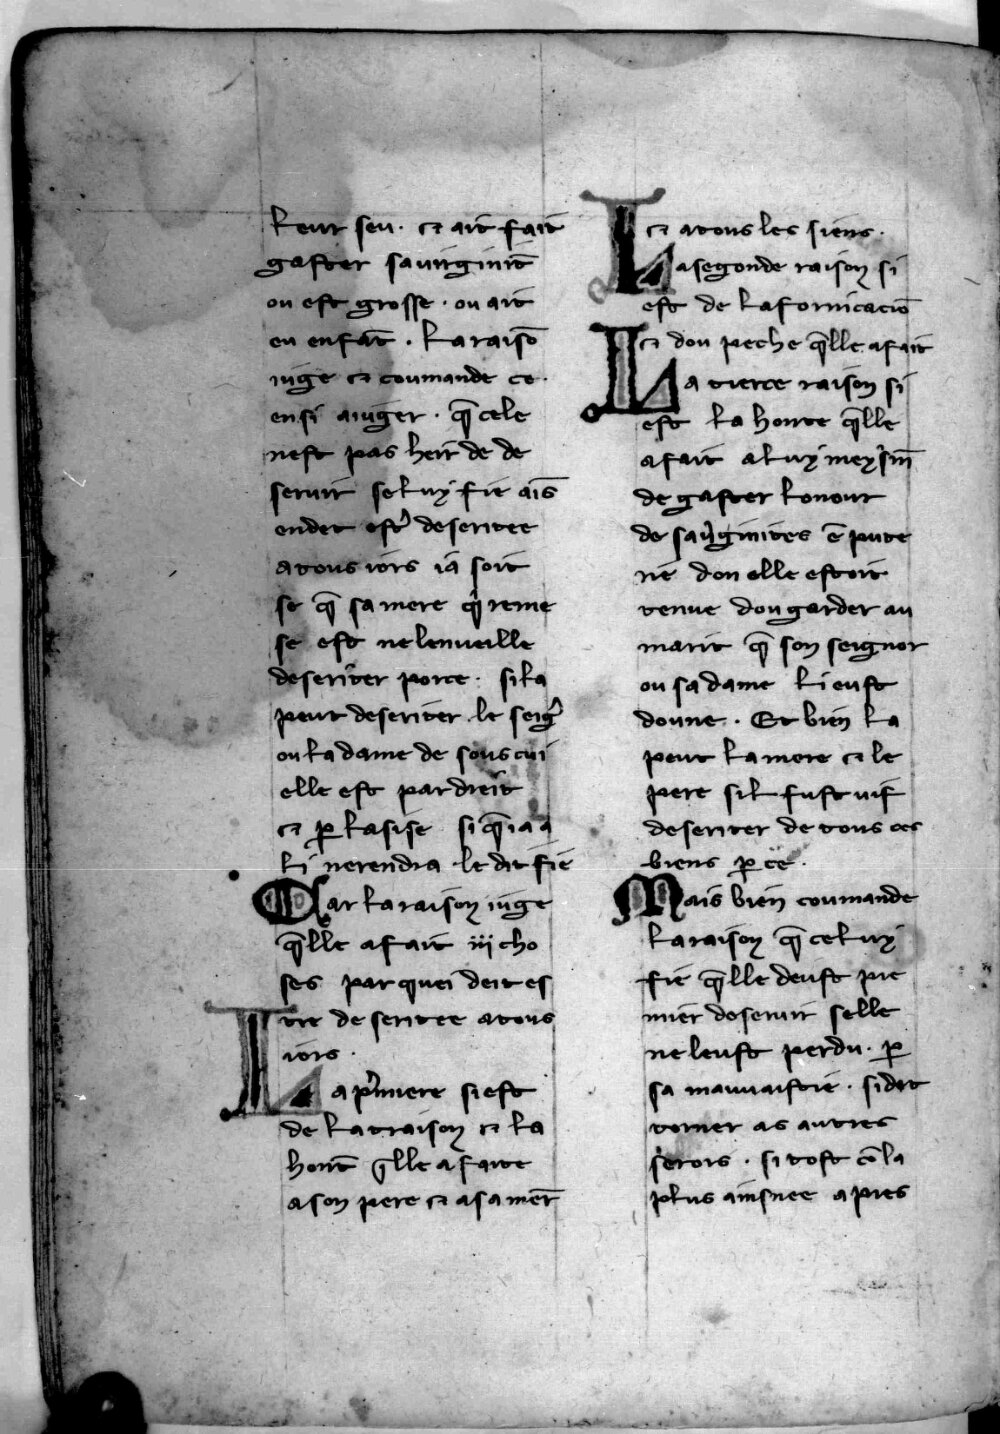 leur seu · ⁊ ait fait
gaster sa uirginit̄
ou est grosse · ou ait
eu enfāt · la raisō
iuge ⁊ coumande ce ·
ensi a iuger · q̄ cele
nest pas heir de de
seruir se luy fie aīs
en det estʾ deseritee
a tous iors ia soit
se q̄ sa mere q̄ reme
se est ne len ueille
deseriter por ce · si la
peut deseriter le seigʾ
ou la dame de sous cui
elle est par dreit
⁊ ꝑ lasise si q̄ ia a
li ne rendra le dit fie
Car la raison iuge
q̄lle a fait iij cho
ses par quei deit es
tre deseritee a tous
iors ·
La pʾmiere si est
de la traison ⁊ la
hont̄ q̄lle a faite
a son pere ⁊ a sa mer̄
⁊ a tous les siens ·
La segonde raison si
est de la fornicaciō
⁊ dou peche q̄lle a fait
La tierce raison si
est la honte q̄lle
a fait a luy meysm̄
de gaster lonour
de sa uʾginites ē pute
rie don elle estoit
tenue dou garder au
marit q̄ son seignor
ou sa dame li eust
doune · Et bien la
peut la mere ⁊ le
pere sil fust uif
deseriter de tous ces
biens ꝑ ce ·
Mais bien coumande
la raison q̄ celuy
fie q̄lle deust pre
mier deseruir selle
ne leust perdu · ꝑ
sa mauuaistie · si det
torner as autres
serors · si tost cō la
plus ainsnee apres